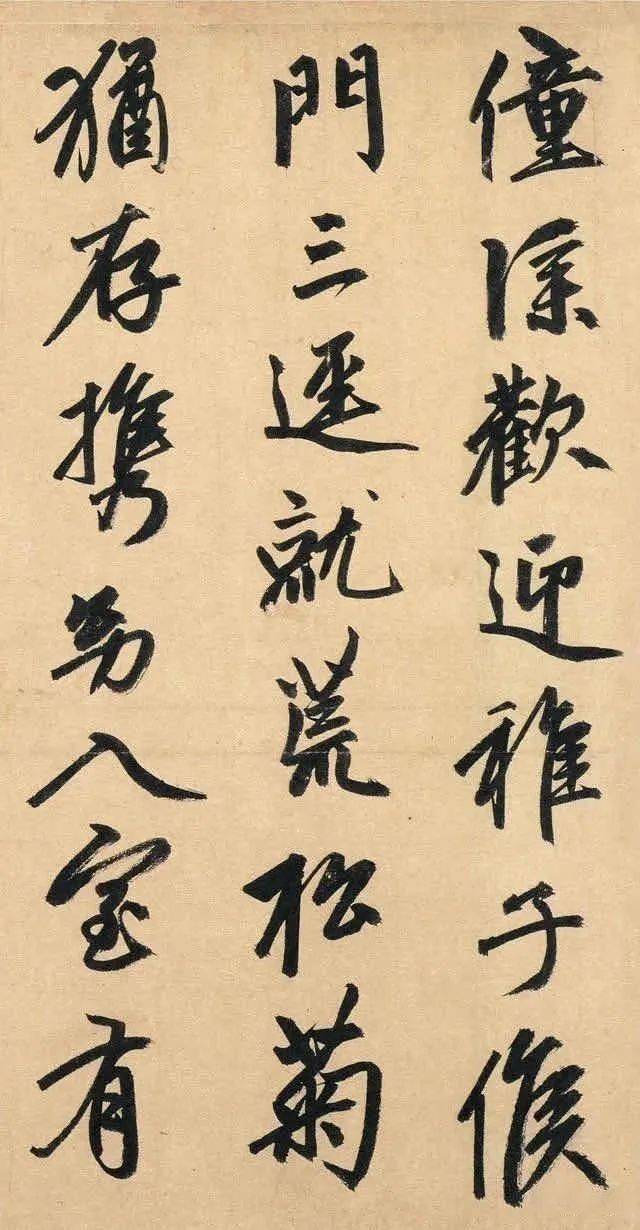 僮僕歡迎稚子候
門三逕就荒松菊
猶存携幼入室有